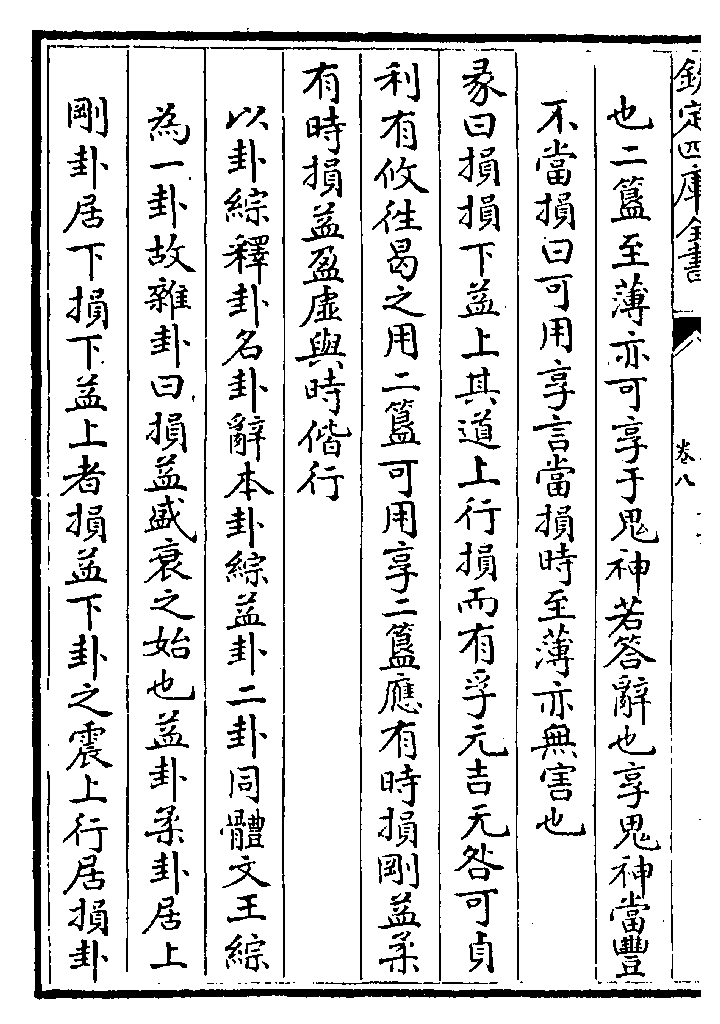 欽定四庫全書
卷八
也二簋至薄亦可享于鬼神若答辭也享鬼神當豐
不當損曰可用享言當損時至薄亦無害也
彖曰損損下益上其道上行損而有孚元吉无咎可貞
利有攸往曷之用二簋可用享二簋應有時損剛益柔
有時損益盈虛與時偕行
以卦綜釋卦名卦辭本卦綜益卦二卦同體文王綜
為一卦故雜卦曰損益盛衰之始也益卦柔卦居上
剛卦居下損下益上者損益下卦之震上行居損卦